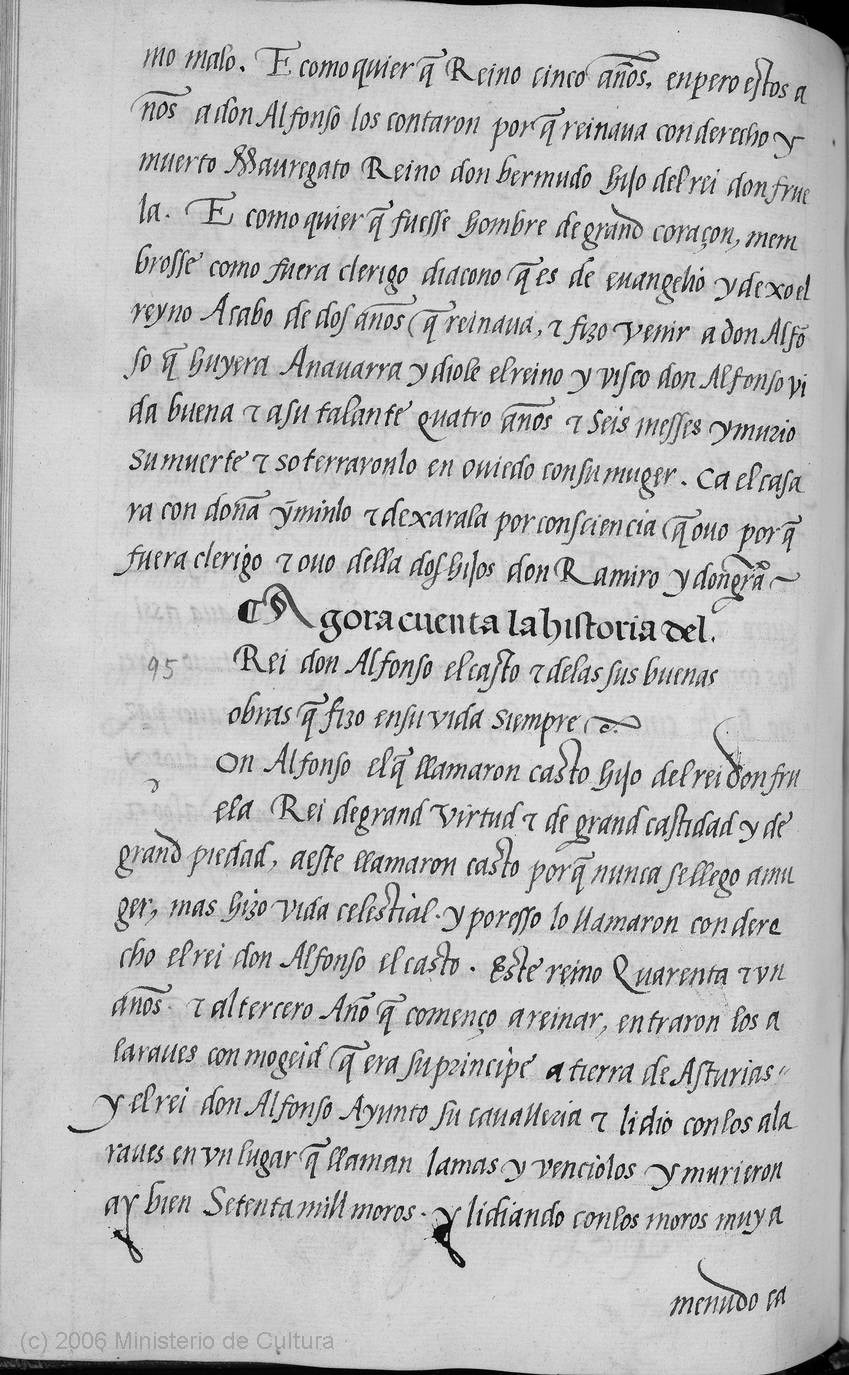 mo malo. E como quier q̃ Reino cinco años. enpero estos a
ños a don Alfonso los contaron por q̃ reinaua con derecho y
muerto Mauregato Reino don bermudo hijo del rei don frue
la. E como quier q̃ fuesse hombre de grand coraçon, mem
brosse como fuera clerigo diacono q̃ es de euangelio y dexo el
reyno Acabo de dos años q̃ reinaua, τ fizo venir a don Alfõ
so q̃ huyera Anauarra y diole el reino y visco don Alfonso vi
da buena τ a su talante quatro años τ Seis messes y murio
su muerte τ soterraronlo en ouiedo con su muger. Ca el casa
ra con doña ỹminlo τ dexarala por consciencia q̃ ouo por q̃
fuera clerigo τ ouo della dos hijos don Ramiro y don gr̃a
Agora cuenta la historia del.
95 Rei don Alfonso el casto τ delas sus buenas
obras q̃ fizo en su vida siempre
On Alfonso el q̃ llamaron casto hijo del rei don fru
ela Rei de grand virtud τ de grand castidad y de
grand piedad, a este llamaron casto por q̃ nunca se llego a mu
ger, mas hizo vida celestial. y por esso lo llamaron con dere
cho el rei don Alfonso el casto. Este reino Quarenta τ vn
años. τ al tercero Año q̃ començo a reinar, entraron los a
laraues con mogeid q̃ era su principe a tierra de Asturias
y el rei don Alfonso Ayunto su caualleria τ lidio con los ala
raues en vn lugar q̃ llaman lamas y venciolos y murieron
ay bien Setenta mill moros. y lidiando con los moros muy a
menudo ca
(c) 2006 Ministerio de Cultura